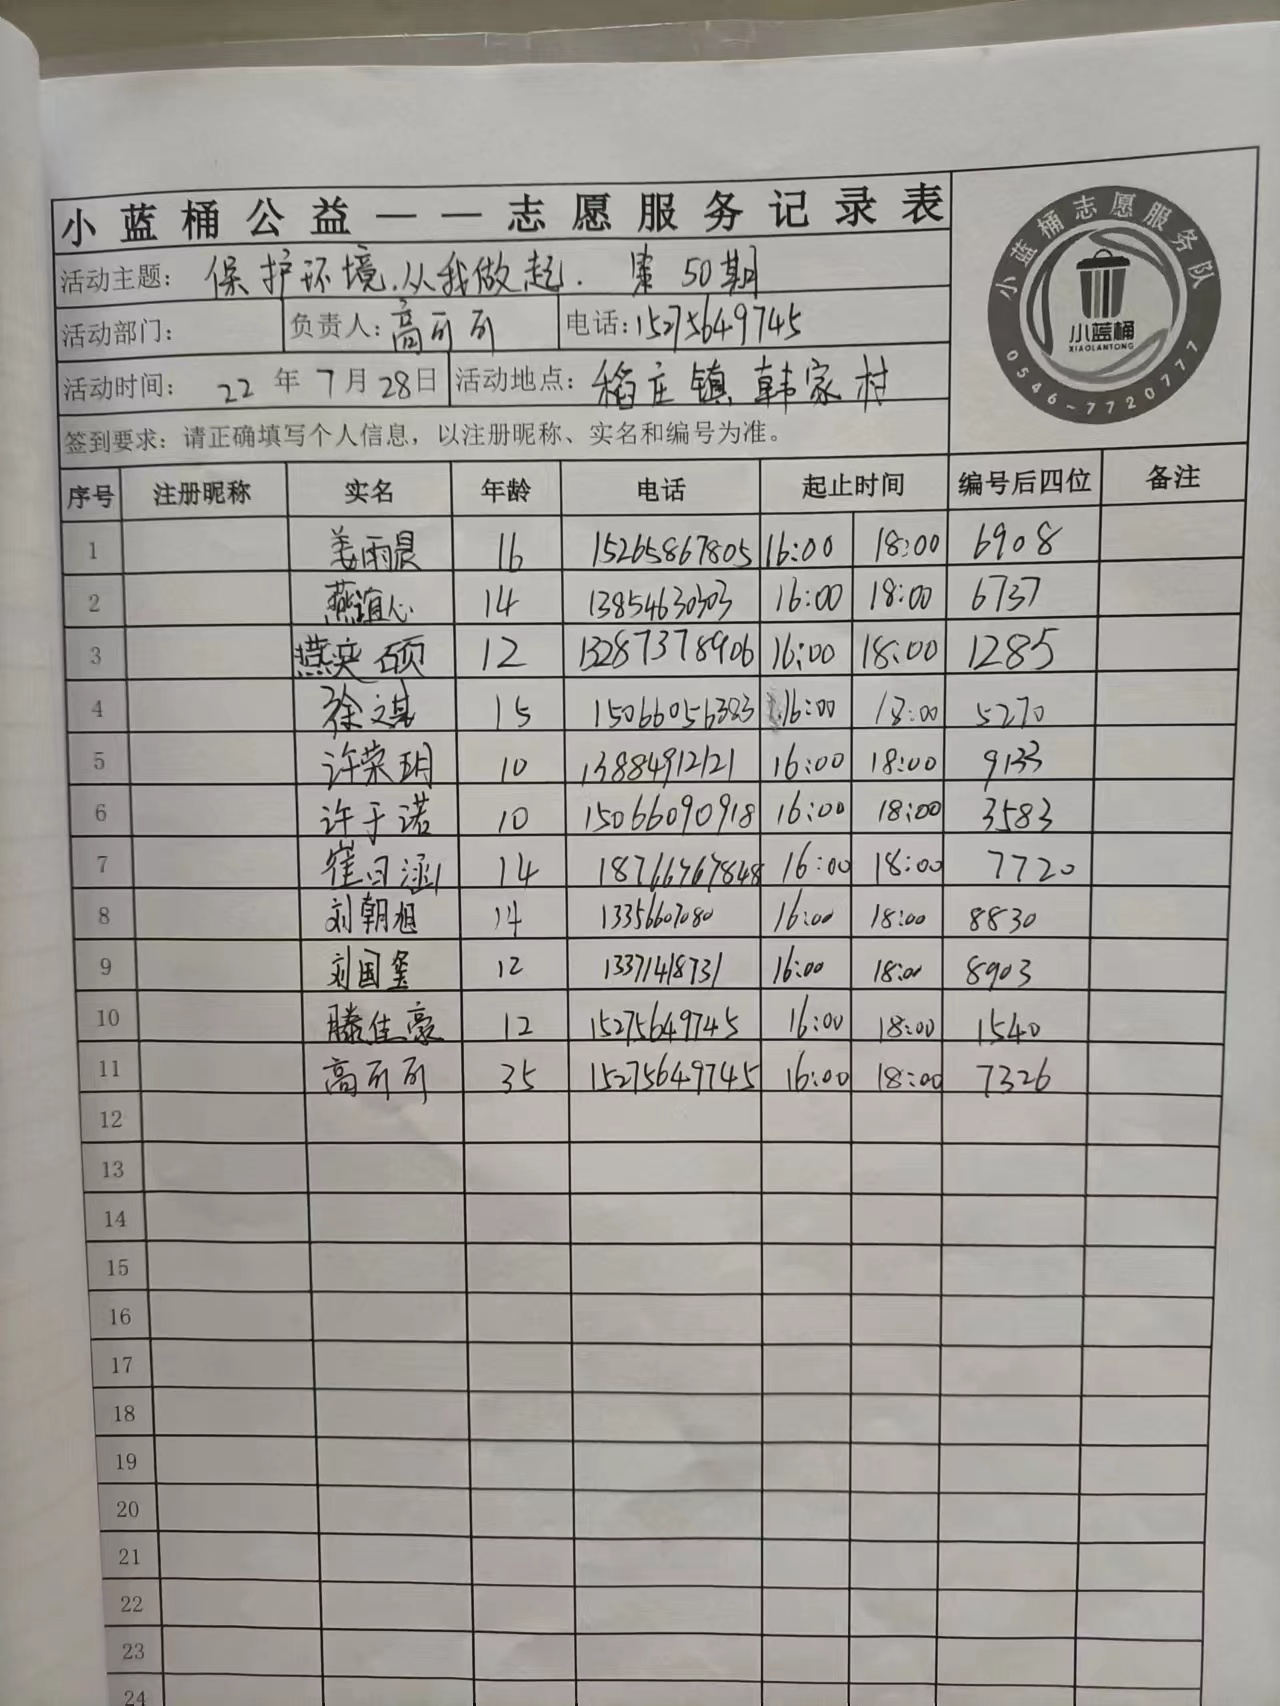 小蓝桶公益——志愿服务记录表
小蓝桶志愿服务队
小蓝桶
XIAOLANTONG
0546-7720777
活动主题: 保护环境.从我做起. 第50期
活动部门: 负责人: 高可可 电话: 15275649745
活动时间: 22年7月28日 活动地点: 稻庄镇韩家村
签到要求: 请正确填写个人信息, 以注册昵称、实名和编号为准。
序号 注册昵称 实名 年龄 电话 起止时间 编号后四位 备注
1 姜雨晨 16 15265867805 16:00 18:00 6908
2 燕谊心 14 13854630303 16:00 18:00 6737
3 燕奕硕 12 13287378906 16:00 18:00 1285
4 徐文琪 15 15066056383 16:00 18:00 5270
5 许荣玥 10 13884912121 16:00 18:00 9133
6 许于诺 10 15066090918 16:00 18:00 3583
7 崔日涵 14 18766767848 16:00 18:00 7720
8 刘朝旭 14 13356607080 16:00 18:00 8830
9 刘国玺 12 13371418731 16:00 18:00 8903
10 滕佳豪 12 15275649745 16:00 18:00 1540
11 高可可 35 15275649745 16:00 18:00 7326
12
13
14
15
16
17
18
19
20
21
22
23
24